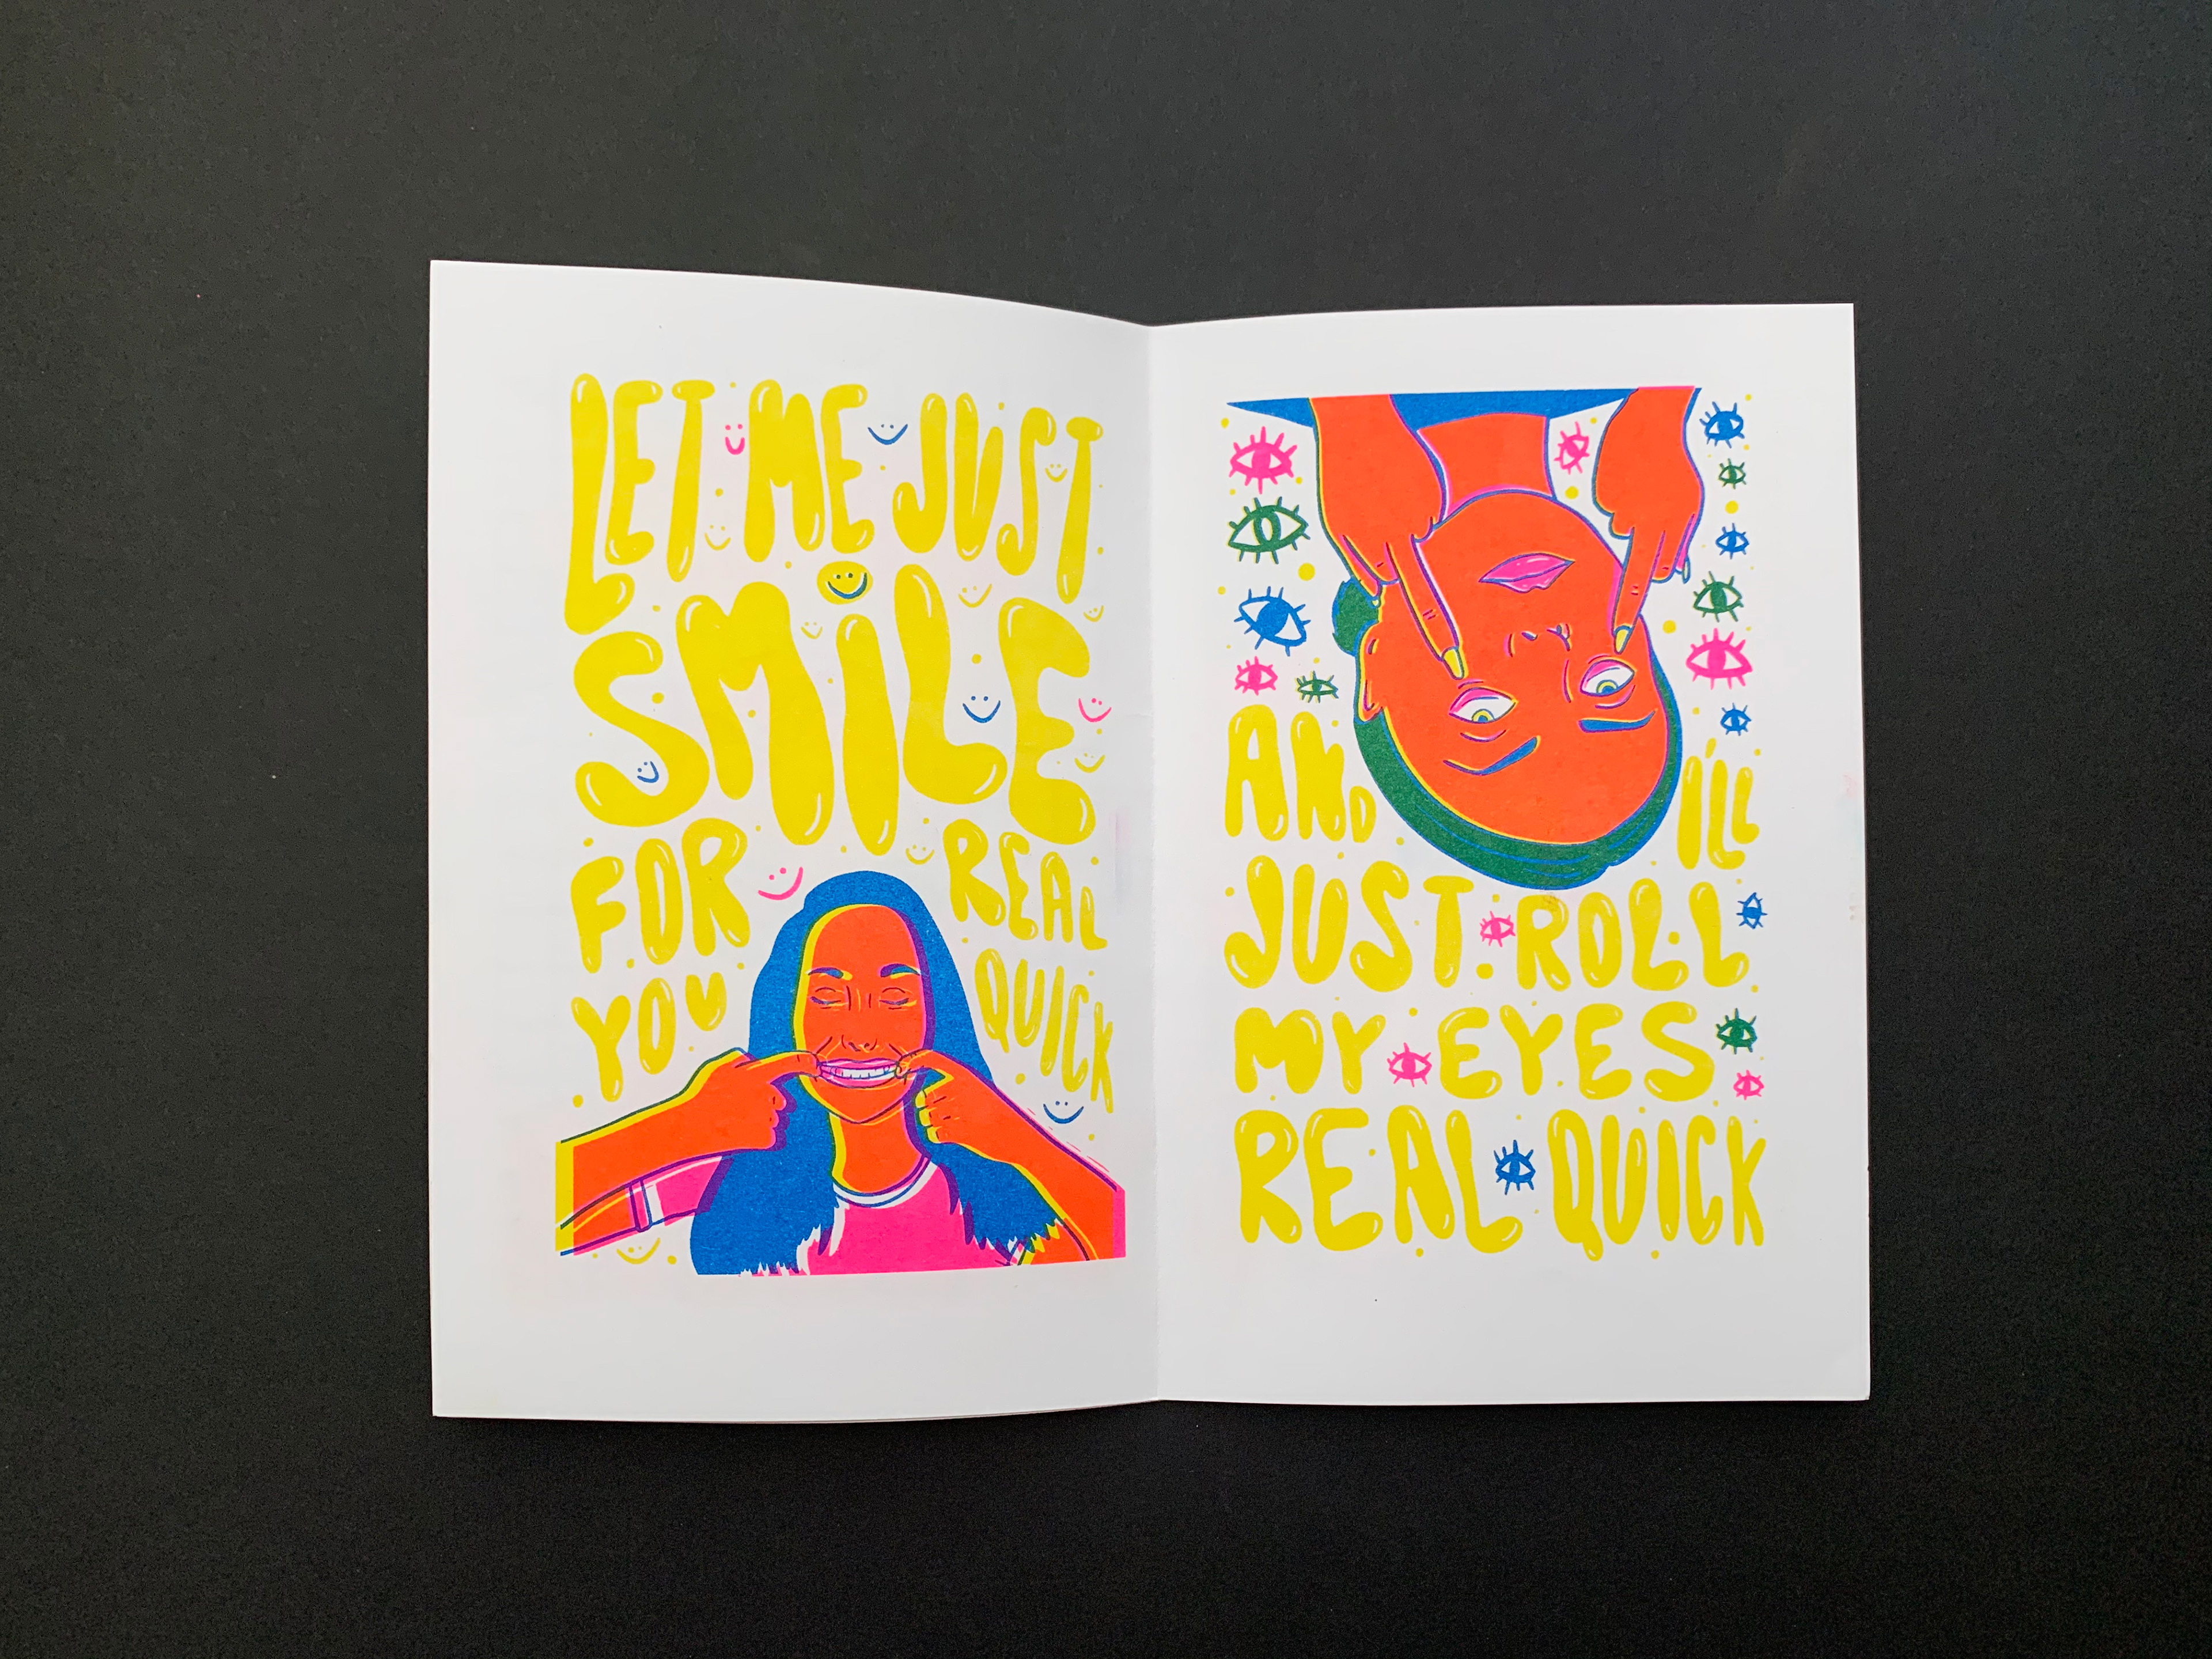 LET ME JUST
SMiLE
FOR REAL
YOU QUICK
AND I'LL
JUST ROLL
MY EYES
REAL QUICK